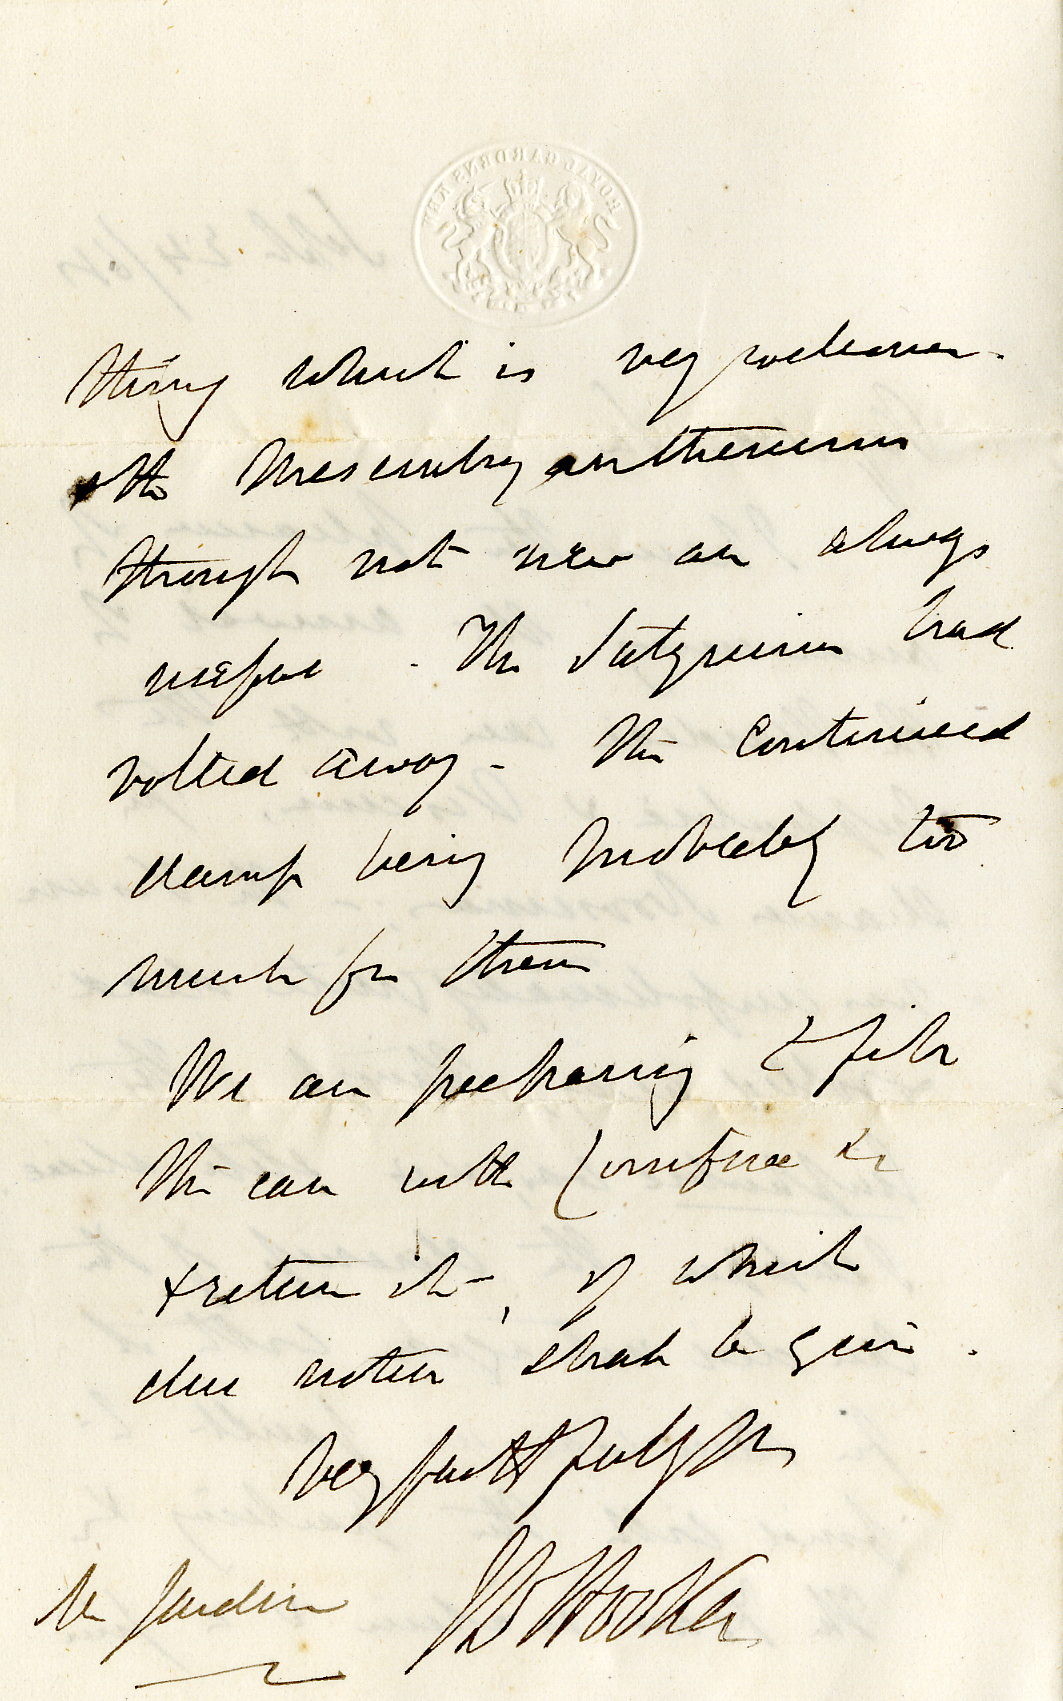 ROYAL GARDENS KEW
thing which is very welcome.
the Mesembryanthemums
though not new are always
useful. The Satyrium had
rotted away - the continued
damp being probably too
much for them
We are preparing to fill
the case with Coniferae &c
& return it, of which
due notice shall be given.
Very faithfully yrs
J D Hooker
Mr